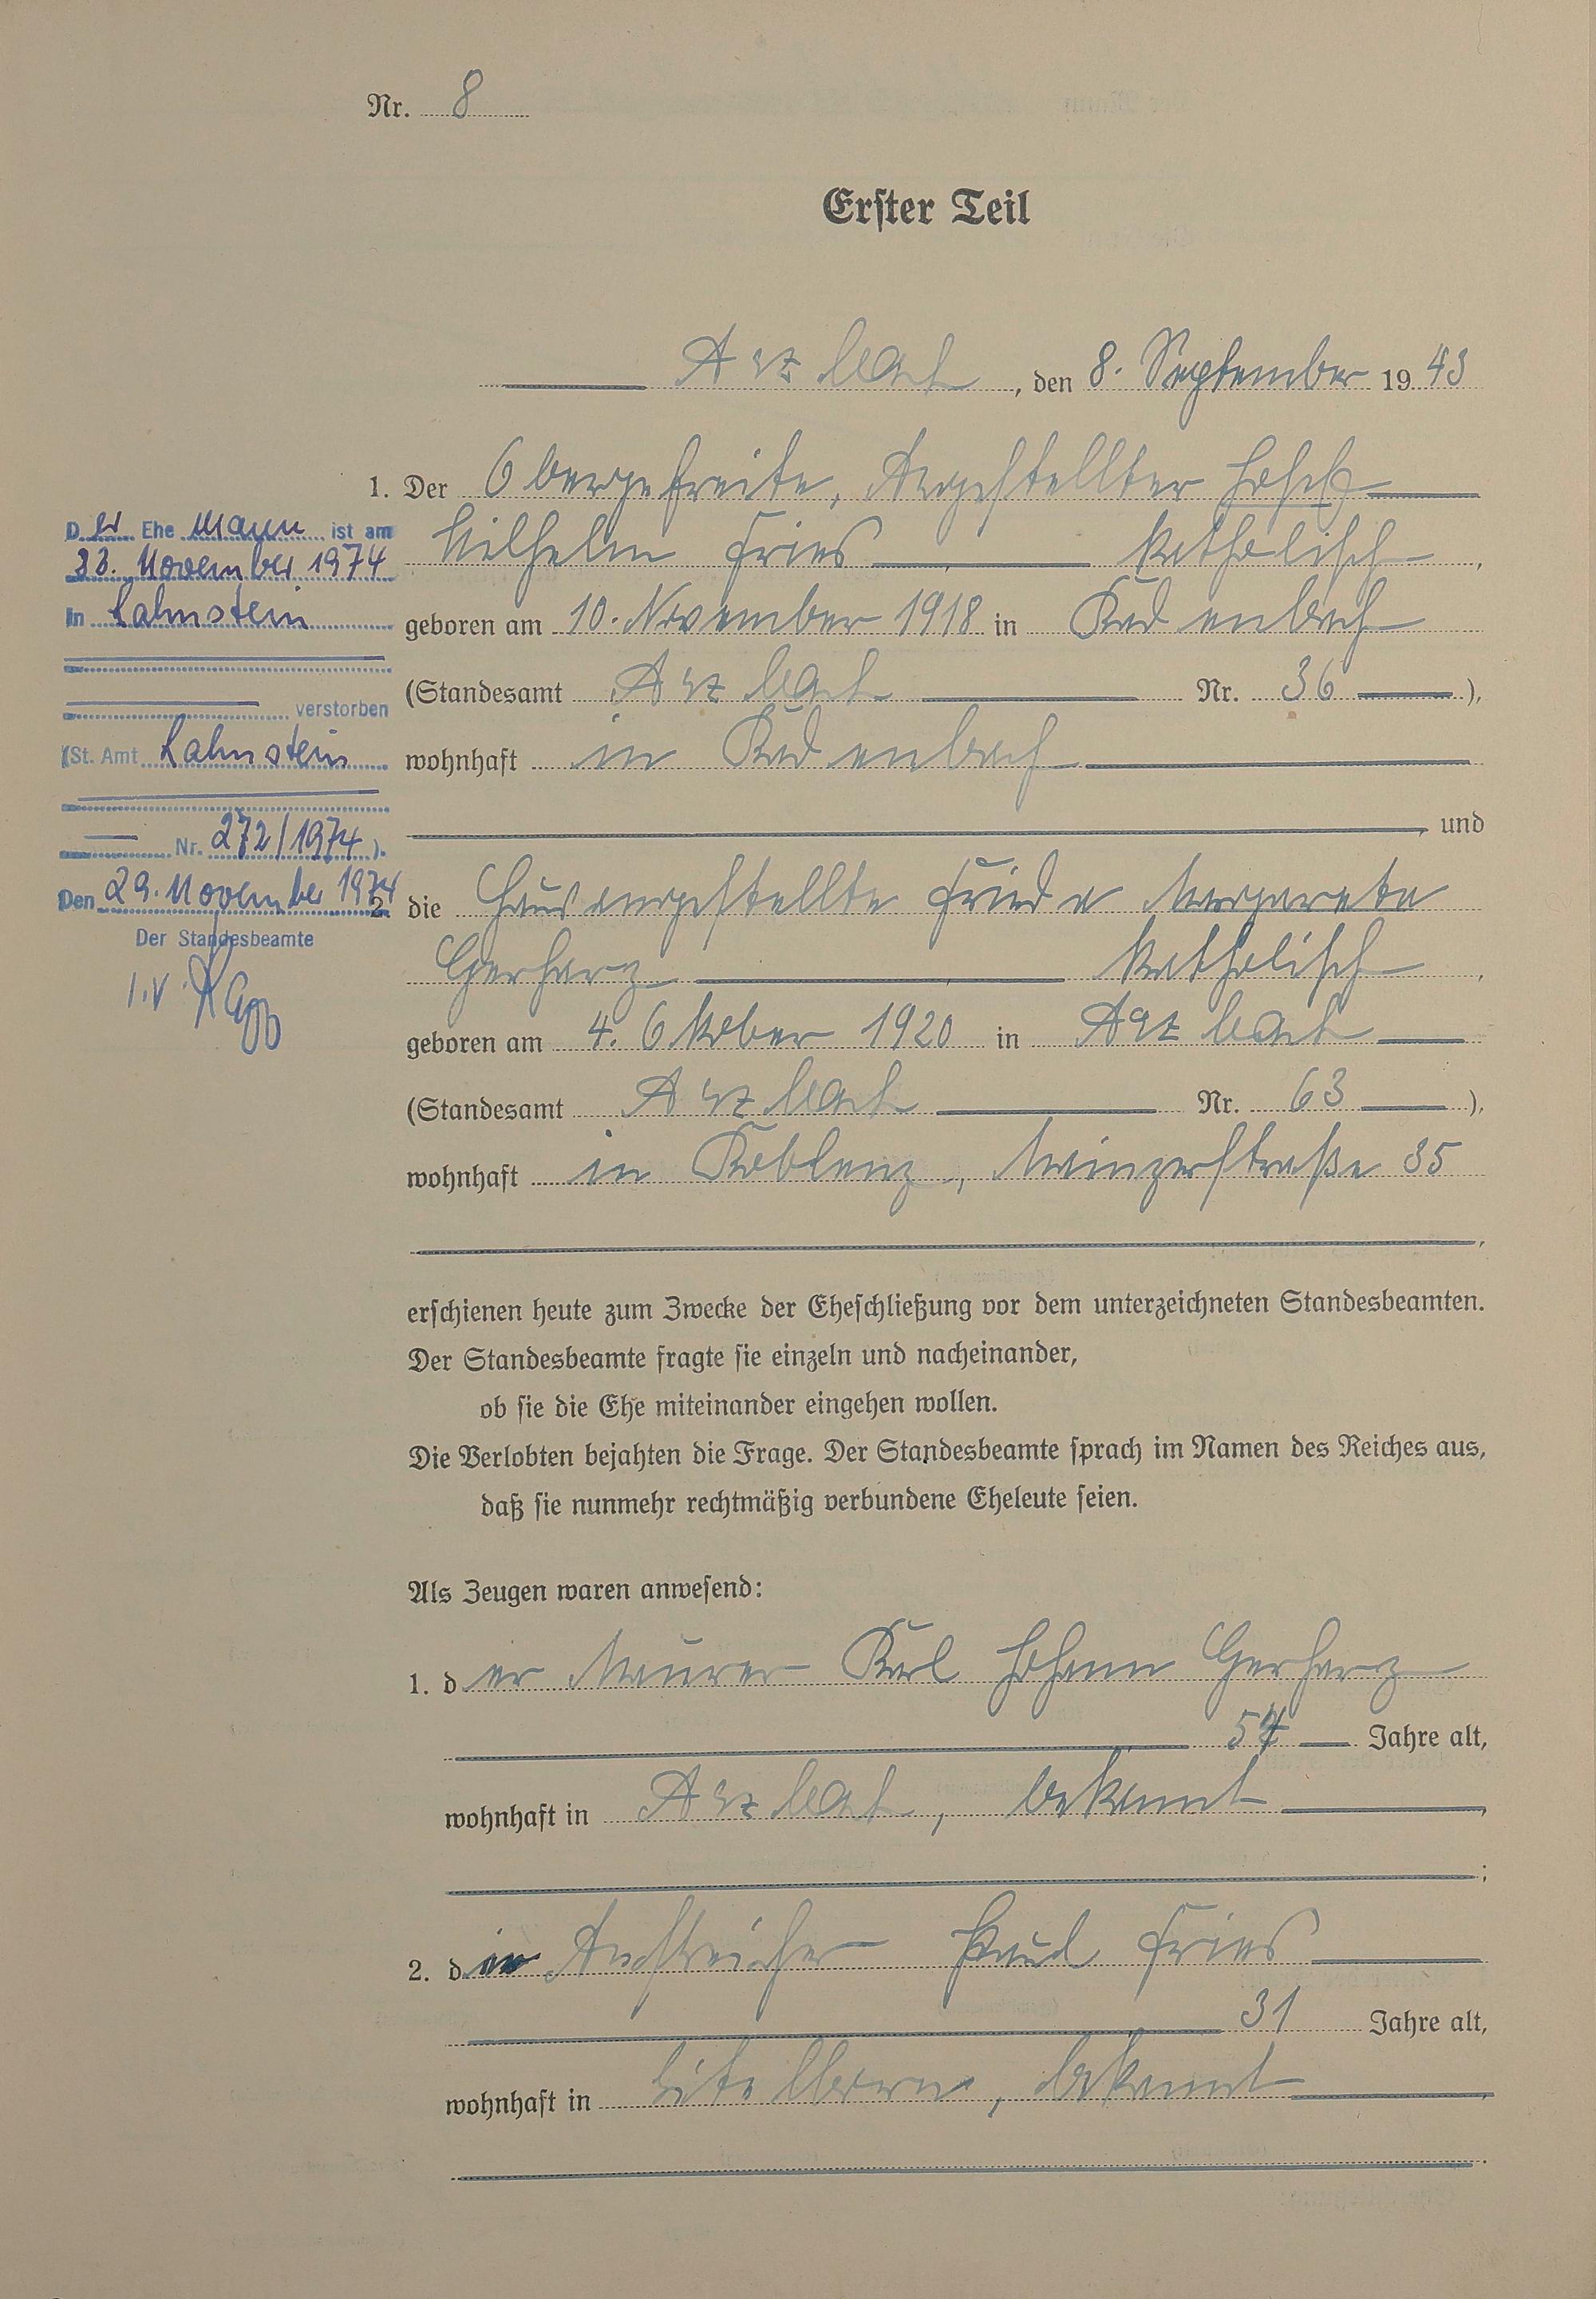 Nr. 8
Erster Teil
Arzbach, den 8. September 1943
1. Der Obergefreite, Angestellter Josef
Wilhelm Fries katholisch,
geboren am 10. November 1918 in Kadenbach
(Standesamt Arzbach Nr. 36),
wohnhaft in Kadenbach
, und
2. die Hausangestellte Frieda Margareta
Gerharz katholisch,
geboren am 4. Oktober 1920 in Arzbach
(Standesamt Arzbach Nr. 63),
wohnhaft in Koblenz, Mainzerstraße 35
,
erschienen heute zum Zwecke der Eheschließung vor dem unterzeichneten Standesbeamten.
Der Standesbeamte fragte sie einzeln und nacheinander,
ob sie die Ehe miteinander eingehen wollen.
Die Verlobten bejahten die Frage. Der Standesbeamte sprach im Namen des Reiches aus,
daß sie nunmehr rechtmäßig verbundene Eheleute seien.
Als Zeugen waren anwesend:
1. der Maurer Karl Johann Gerharz
Jahre alt,
wohnhaft in Arzbach, bekannt
;
2. d Anstreicher Paul Fries
31 Jahre alt,
wohnhaft in Eitelborn, bekannt
.
Der Ehe Mann ist am
November 1974
in Lahnstein
verstorben
(St. Amt Lahnstein
Nr. 272/1974).
Den 29. November 1974
Der Standesbeamte
I.V.